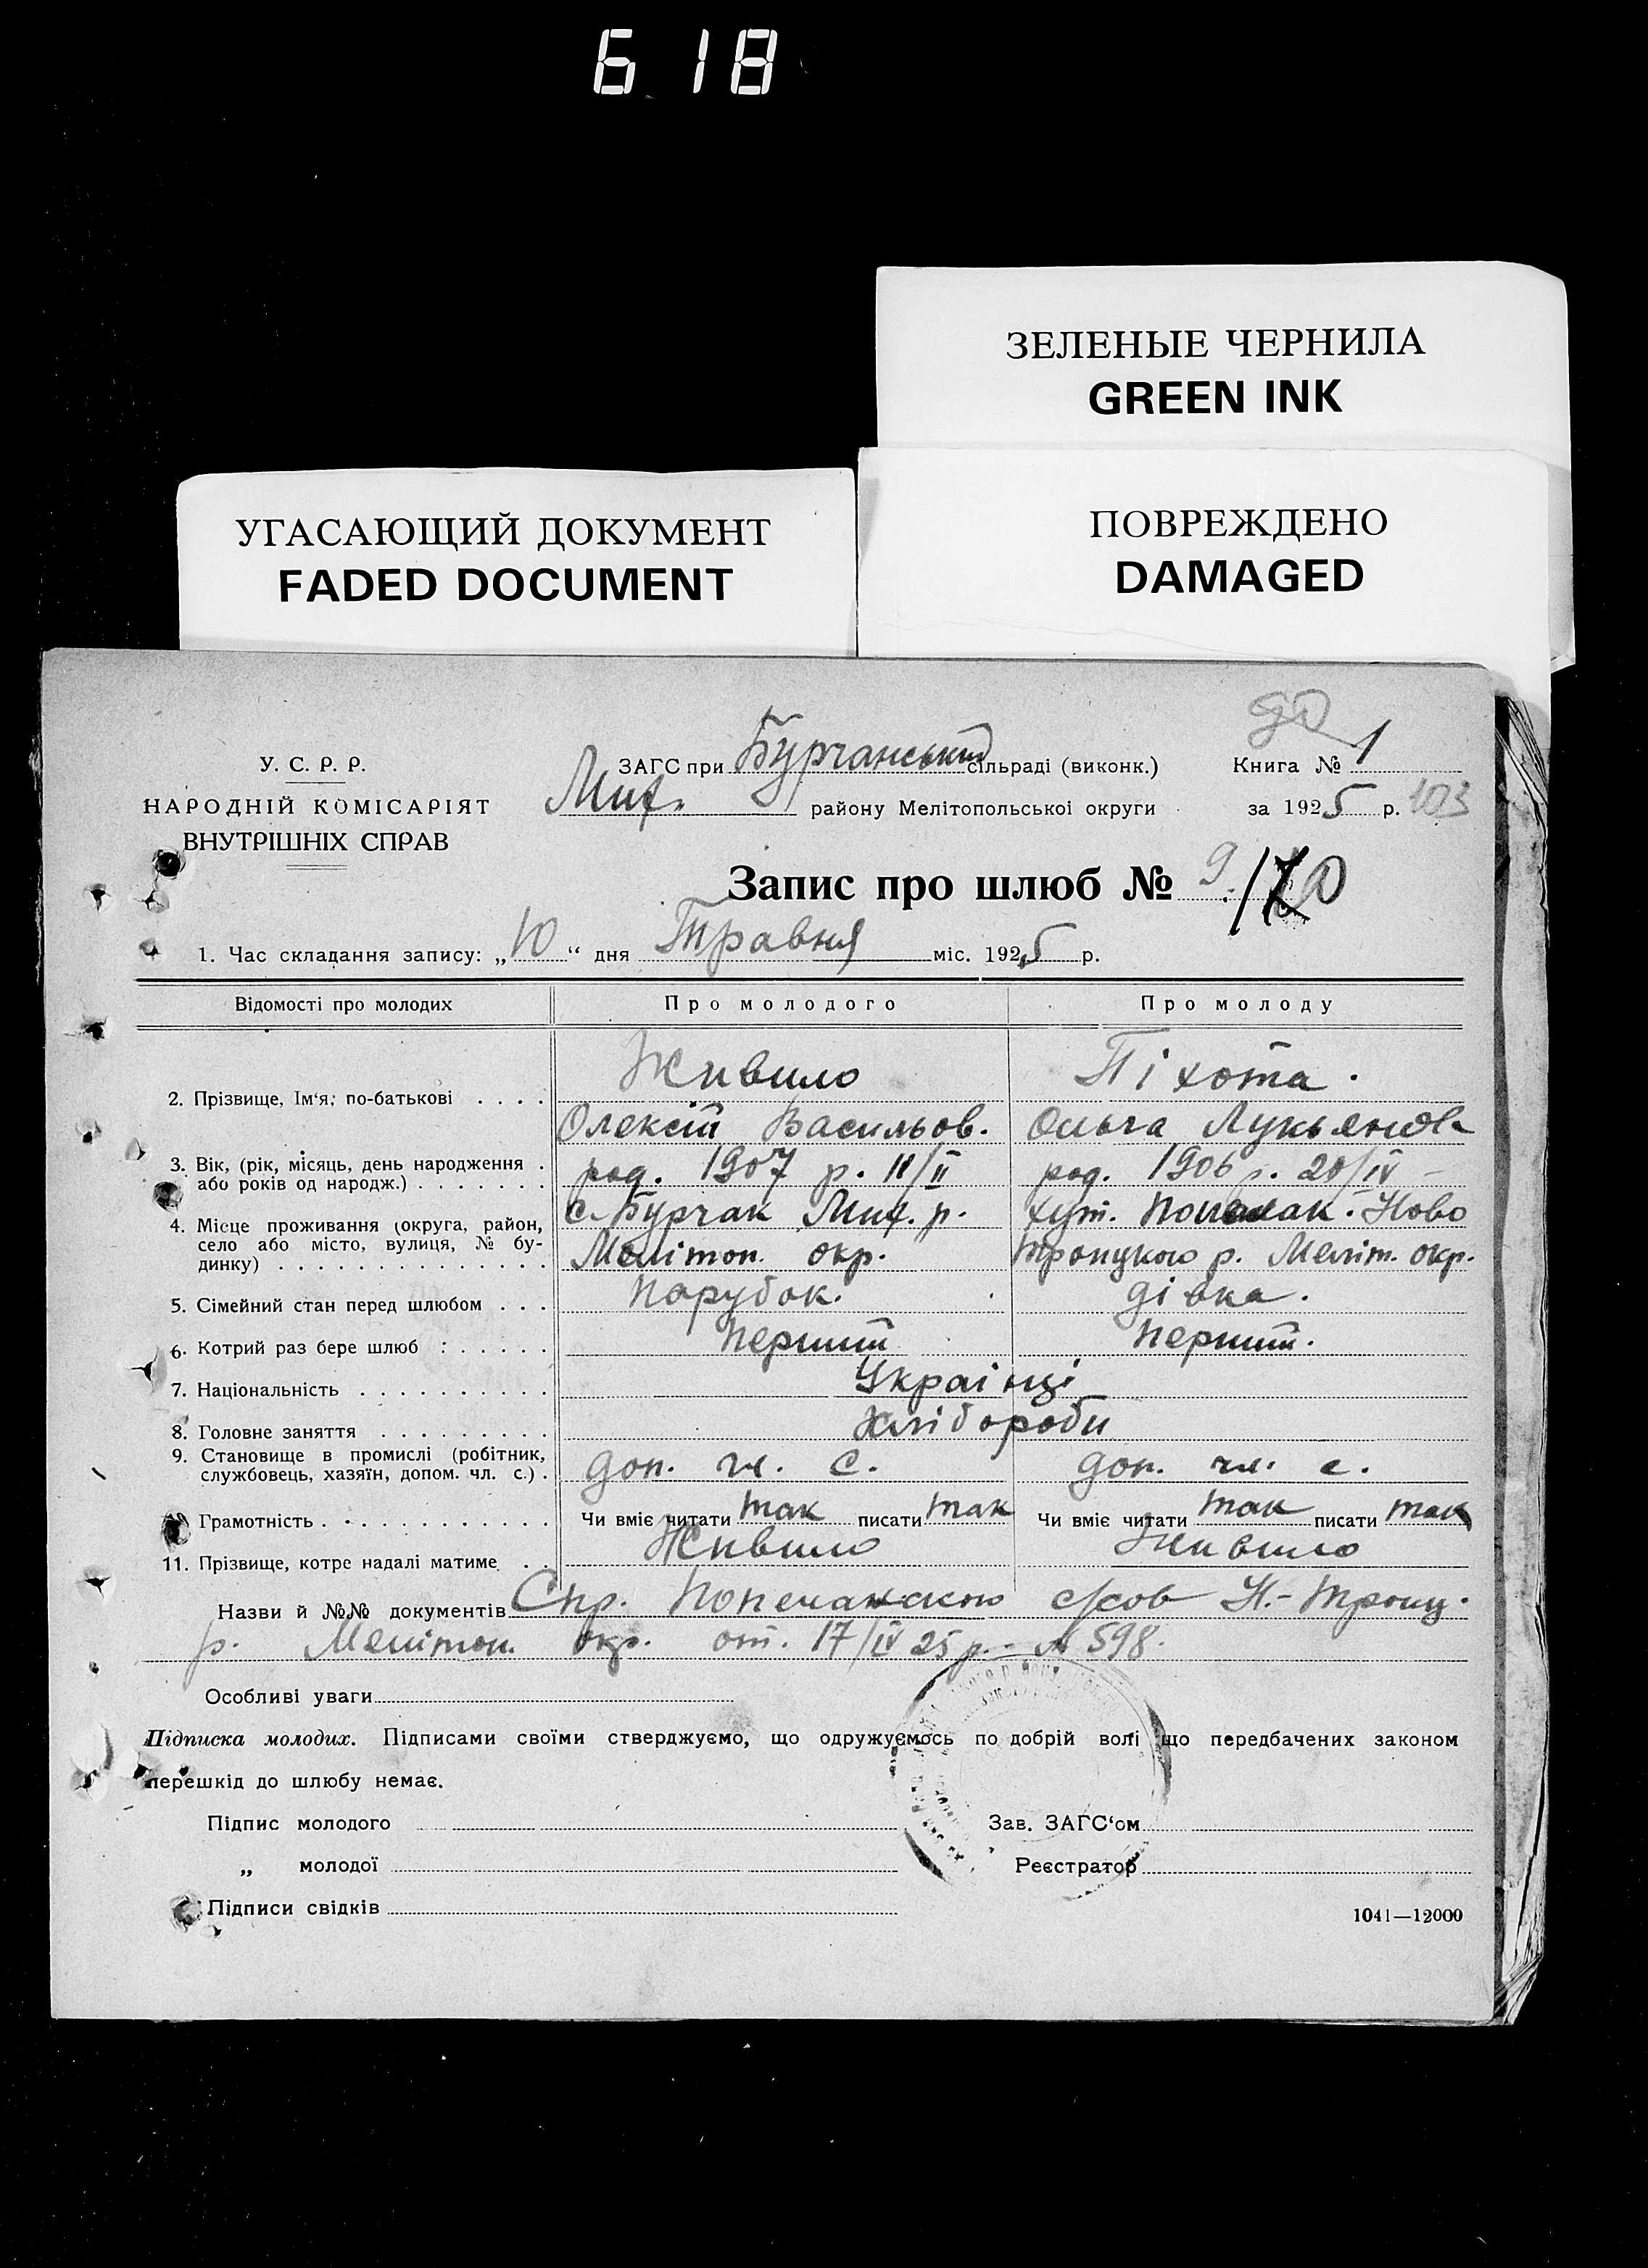 618
ЗЕЛЕНЫЕ ЧЕРНИЛА
GREEN INK
УГАСАЮЩИЙ ДОКУМЕНТ
FADED DOCUMENT
ПОВРЕЖДЕНО
DAMAGED
У. С. Р. Р.
НАРОДНІЙ КОМІСАРІЯТ
ВНУТРІШНІХ СПРАВ
ЗАГС при Бурчанський сільраді (виконк.)
Мих. району Мелітопольської округи
Книга № 1
за 1925 р. 103
Запис про шлюб № 9.
1. Час складання запису: „10“ дня Травня міс. 1925 р.
Відомості про молодих Про молодого Про молоду
Живило Піхота.
2. Прізвище, Ім'я, по-батькові . . . . Олексій Васильов. Ольга Лукьянов
3. Вік, (рік, місяць, день народження . род. 1907 р. 11/II род. 1906 р. 20/IV
або років од народж.) . . . . . . .
4. Місце проживання (округа, район, с. Бурчак Мих. р. хут. Ново
село або місто, вулиця, № бу- Мелітоп. окр. Троицкого р. Меліт. окр.
динку) . . . . . . . . . . . . . .
5. Сімейний стан перед шлюбом . . . Парубок. дівка.
6. Котрий раз бере шлюб : . . . . . Перший Перший.
7. Національність . . . . . . . . . . Українці
8. Головне заняття . . . . . . . . . Хлібороби
9. Становище в промислі (робітник, доп. чл. с. доп. чл. с.
службовець, хазяїн, допом. чл. с.) .
10. Грамотність . . . . . . . . . . . . Чи вміє читати так писати так Чи вміє читати так писати так
11. Прізвище, котре надалі матиме . . Живило Живило
Назви й №№ документів Спр. Н.-Троиц.
р. Мелітоп. окр. от. 17/IV 25 р. № 598.
Особливі уваги
Підписка молодих. Підписами своїми стверджуємо, що одружуємось по добрій волі що передбачених законом
перешкід до шлюбу немає.
Підпис молодого Зав. ЗАГС'ом
„ молодої Реєстратор
Підписи свідків
1041—12000